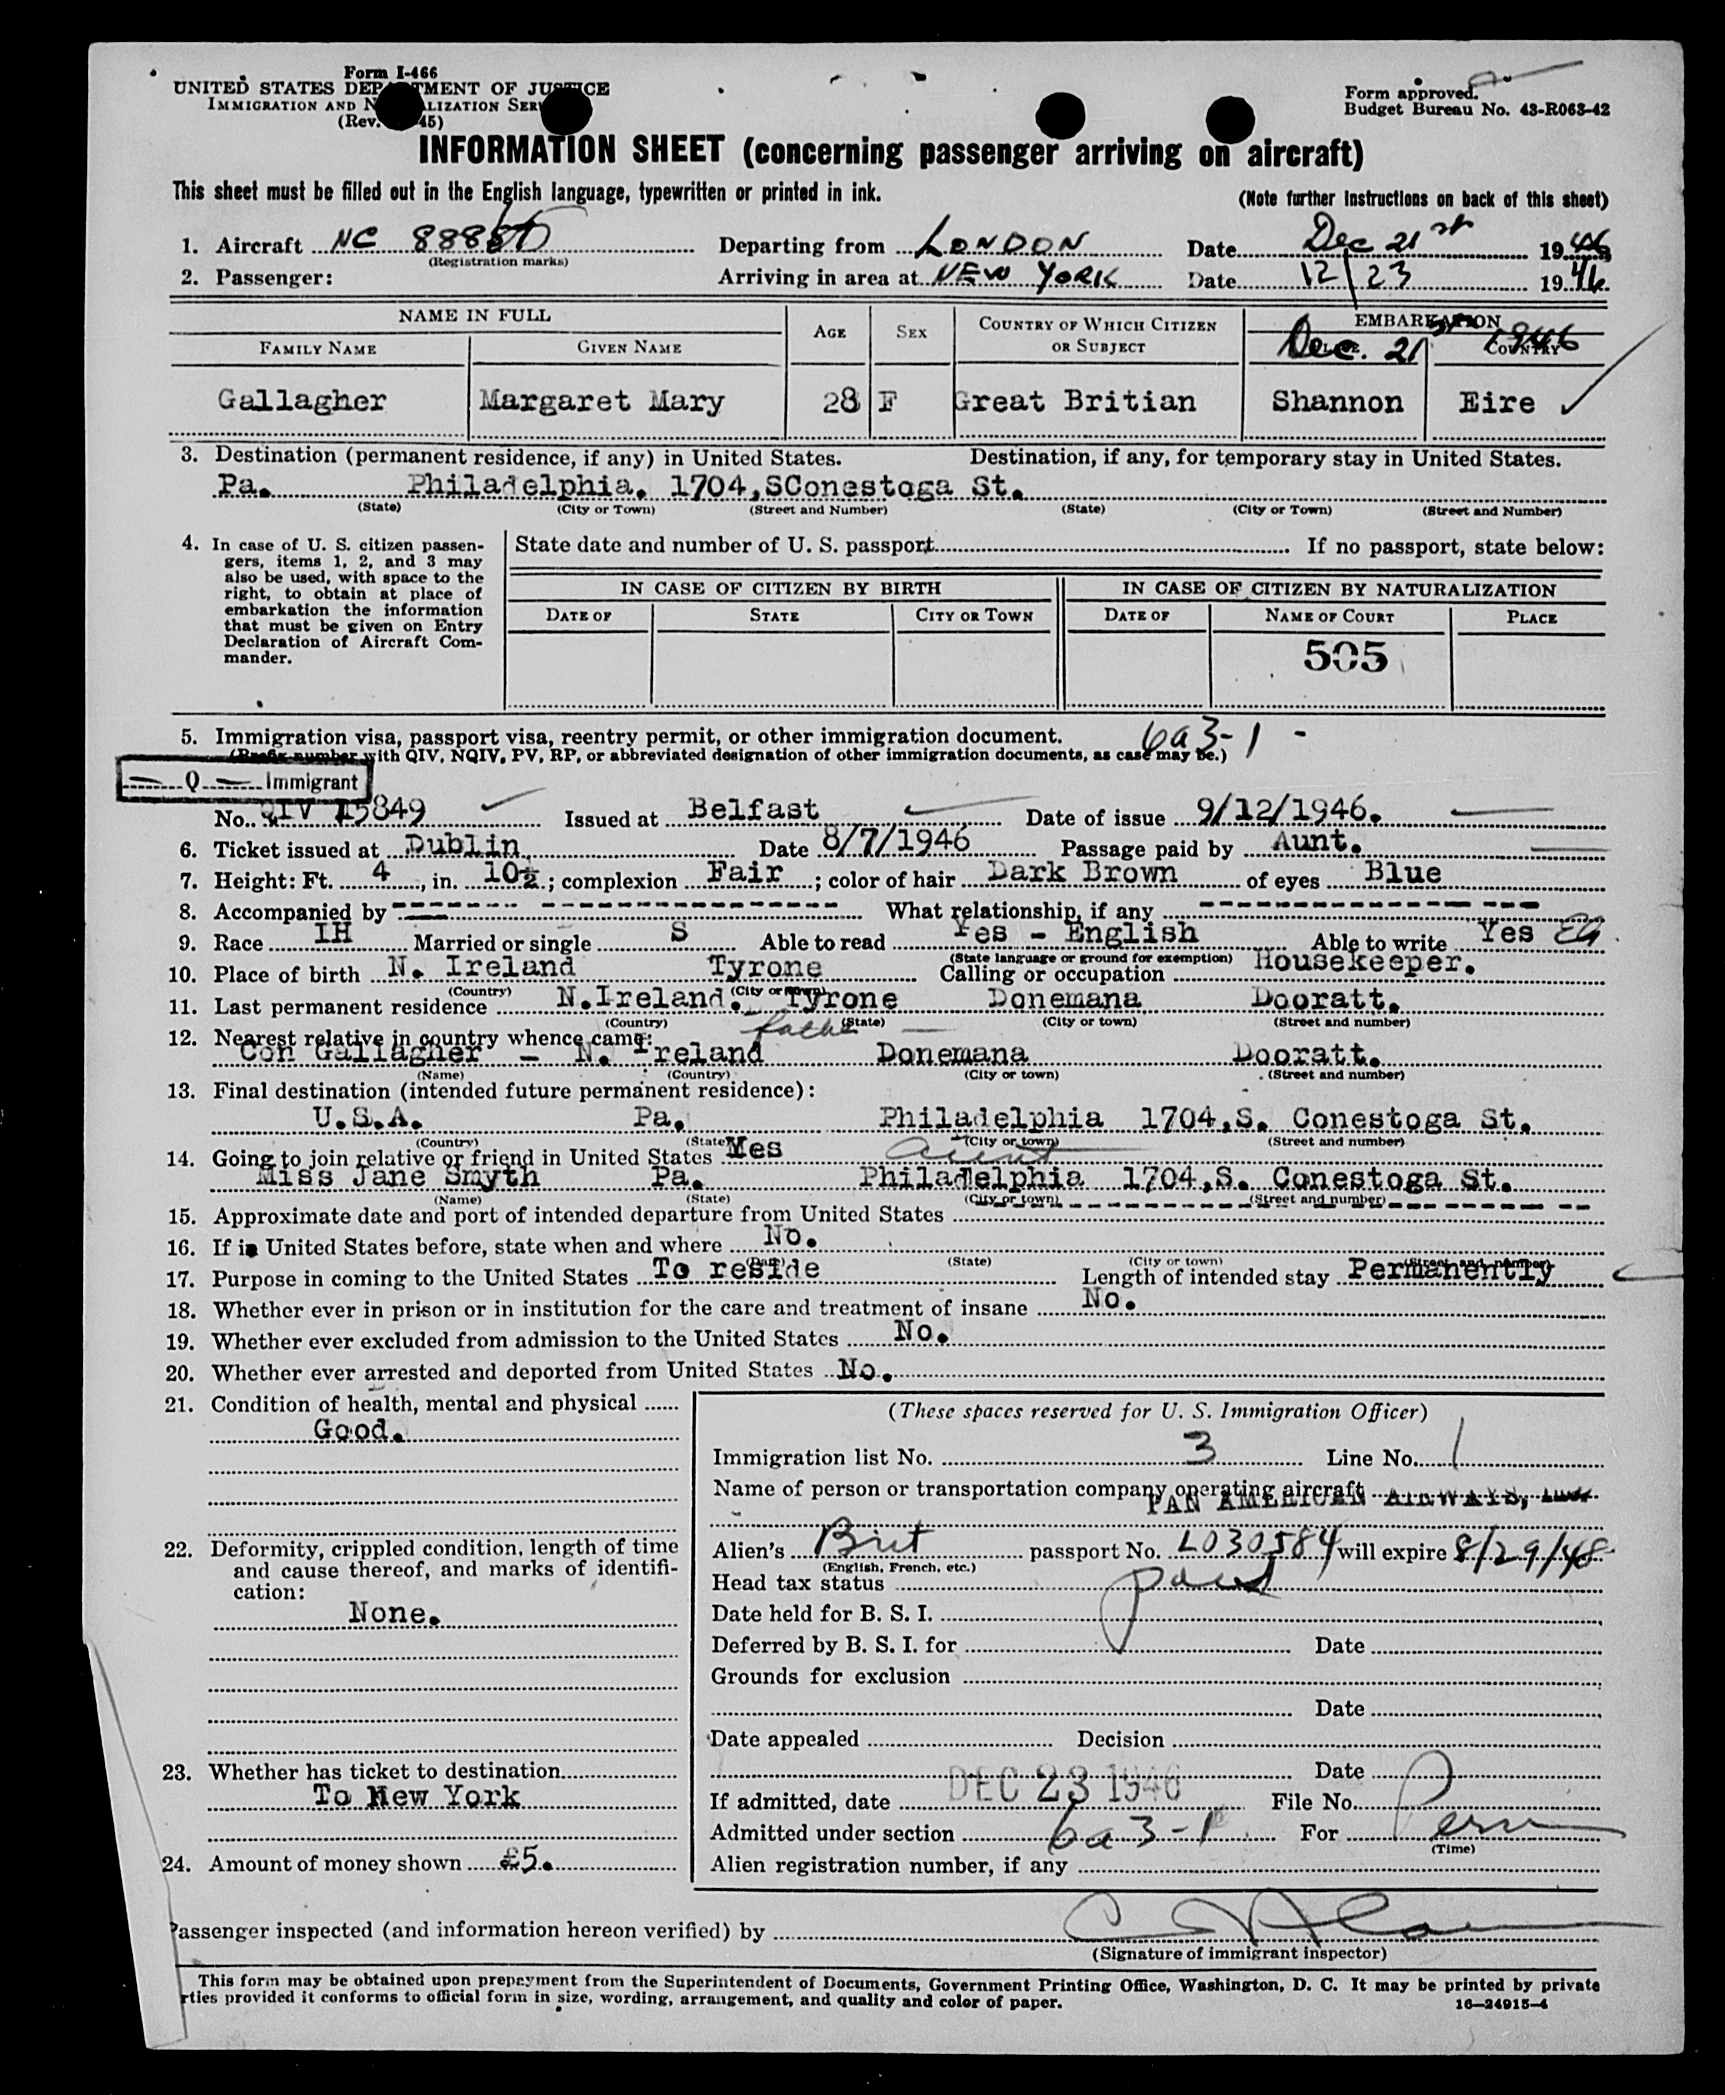 Form I-466
UNITED STATES DEPARTMENT OF JUSTICE
IMMIGRATION AND NATURALIZATION SERVICE
(Rev. 45)
Form approved.
Budget Bureau No. 43-R063-42
INFORMATION SHEET (concerning passenger arriving on aircraft)
This sheet must be filled out in the English language, typewritten or printed in ink. (Note further instructions on back of this sheet)
1. Aircraft NC Departing from LONDON Date Dec 21st 1946
(Registration marks)
2. Passenger: Arriving in area at NEW YORK Date 12/23 1946
NAME IN FULL AGE SEX COUNTRY OF WHICH CITIZEN OR SUBJECT EMBARKATION
FAMILY NAME GIVEN NAME PLACE COUNTRY
Dec. 21st 1946
Gallagher Margaret Mary 28 F Great Britian Shannon Eire ✓
3. Destination (permanent residence, if any) in United States. Destination, if any, for temporary stay in United States.
Pa. Philadelphia. 1704,SConestoga St.
(State) (City or Town) (Street and Number) (State) (City or Town) (Street and Number)
4. In case of U. S. citizen passengers, items 1, 2, and 3 may also be used, with space to the right, to obtain at place of embarkation the information that must be given on Entry Declaration of Aircraft Commander.
State date and number of U. S. passport If no passport, state below:
IN CASE OF CITIZEN BY BIRTH IN CASE OF CITIZEN BY NATURALIZATION
DATE OF STATE CITY OR TOWN DATE OF NAME OF COURT PLACE
505
5. Immigration visa, passport visa, reentry permit, or other immigration document. 6a3-1 -
(Prefix number with QIV, NQIV, PV, RP, or abbreviated designation of other immigration documents, as case may be.)
Q Immigrant
No. QIV 15849 Issued at Belfast Date of issue 9/12/1946.
6. Ticket issued at Dublin Date 8/7/1946 Passage paid by Aunt.
7. Height: Ft. 4, in. 10½; complexion Fair; color of hair Dark Brown of eyes Blue
8. Accompanied by What relationship, if any
9. Race IH Married or single S Able to read Yes - English Able to write Yes
(State language or ground for exemption)
10. Place of birth N. Ireland Tyrone Calling or occupation Housekeeper.
(Country) (City or town)
11. Last permanent residence N.Ireland. Tyrone Donemana Dooratt.
(Country) (State) (City or town) (Street and number)
12. Nearest relative in country whence came: father
Con Gallagher - N. Ireland Donemana Dooratt.
(Name) (Country) (City or town) (Street and number)
13. Final destination (intended future permanent residence):
U.S.A. Pa. Philadelphia 1704,S. Conestoga St.
(Country) (State) (City or town) (Street and number)
14. Going to join relative or friend in United States Yes aunt
Miss Jane Smyth Pa. Philadelphia 1704,S. Conestoga St.
(Name) (State) (City or town) (Street and number)
15. Approximate date and port of intended departure from United States
16. If in United States before, state when and where No.
(Date) (State) (City or town) (Street and number)
17. Purpose in coming to the United States To reside Length of intended stay Permanently
18. Whether ever in prison or in institution for the care and treatment of insane No.
19. Whether ever excluded from admission to the United States No.
20. Whether ever arrested and deported from United States No.
21. Condition of health, mental and physical
Good.
22. Deformity, crippled condition, length of time and cause thereof, and marks of identification:
None.
23. Whether has ticket to destination
To New York
24. Amount of money shown £5.
(These spaces reserved for U. S. Immigration Officer)
Immigration list No. 3 Line No. 1
Name of person or transportation company operating aircraft PAN AMERICAN AIRWAYS, INC.
Alien's Brit passport No. L030584 will expire 8/29/48
(English, French, etc.)
Head tax status paid
Date held for B. S. I.
Deferred by B. S. I. for Date
Grounds for exclusion
Date
Date appealed Decision
Date
If admitted, date DEC 23 1946 File No.
Admitted under section 6a3-1 For Perm
(Time)
Alien registration number, if any
Passenger inspected (and information hereon verified) by
(Signature of immigrant inspector)
This form may be obtained upon prepayment from the Superintendent of Documents, Government Printing Office, Washington, D. C. It may be printed by private
rties provided it conforms to official form in size, wording, arrangement, and quality and color of paper.
16—24915-4